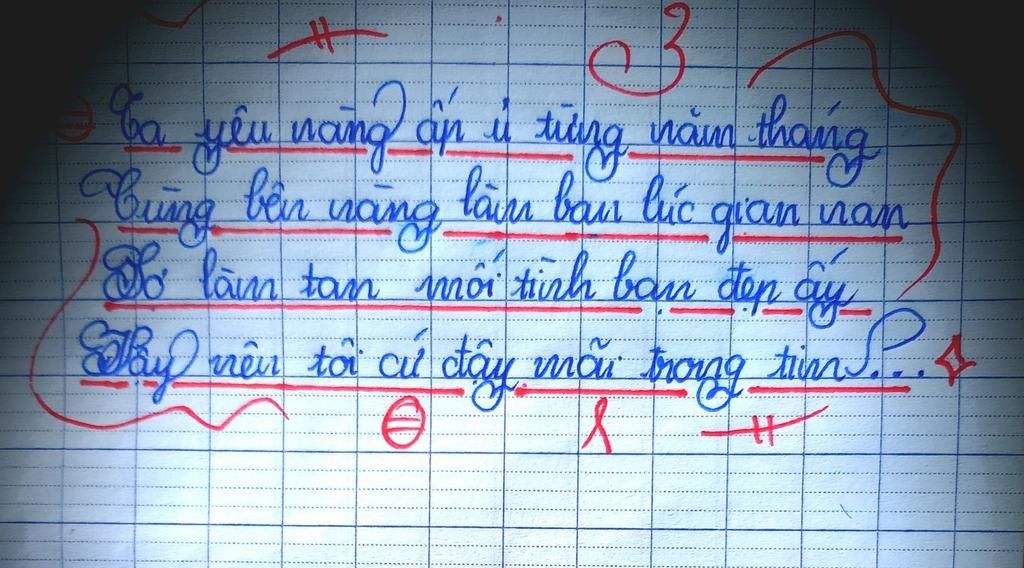 3
Ta yêu nàng ấp ủ từng năm tháng
Cùng bên nàng làm bạn lúc gian nan
Sợ làm tan mối tình bạn đẹp ấy
Vậy nên tôi cứ đậy mãi trong tim...